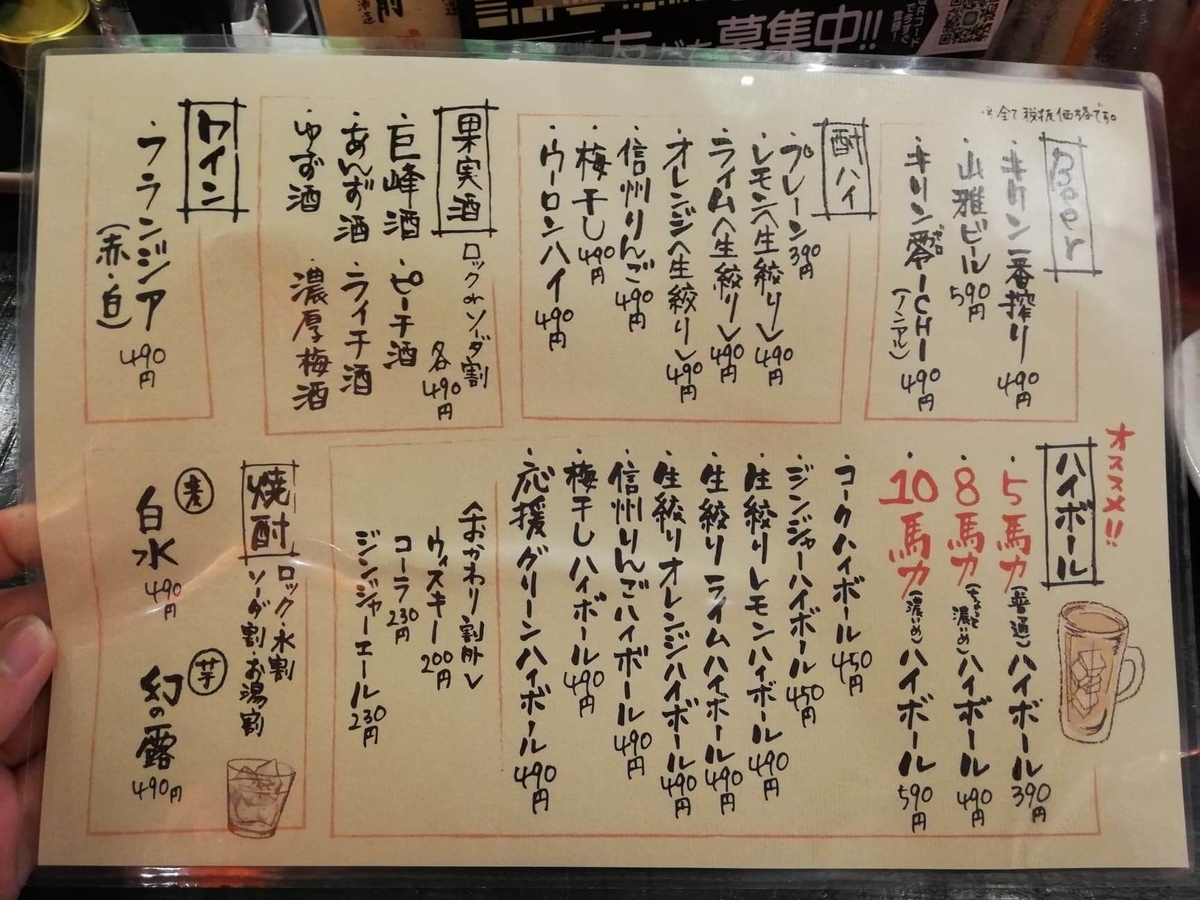 募集中!!
※全て税抜価格です。
Beer
・キリン一番搾り 490円
・山雅ビール 590円
・キリン零ICHI(ノンアル) 490円
ゼロ
酎ハイ
・プレーン 390円
・レモン〈生絞り〉 490円
・ライム〈生絞り〉 490円
・オレンジ〈生絞り〉 490円
・信州りんご 490円
・梅干し 490円
・ウーロンハイ 490円
果実酒
ロックorソーダ割
各490円
・巨峰酒
・ピーチ酒
・あんず酒
・ライチ酒
・ゆず酒
・濃厚梅酒
ワイン
・フランジア
(赤・白)
490円
オススメ!!
ハイボール
・5馬力(普通)ハイボール 390円
・8馬力(ちょっと濃いめ)ハイボール 490円
・10馬力(濃いめ)ハイボール 590円
・コークハイボール 450円
・ジンジャーハイボール 450円
・生絞りレモンハイボール 490円
・生絞りライムハイボール 490円
・生絞りオレンジハイボール 490円
・信州りんごハイボール 490円
・梅干しハイボール 490円
・応援グリーンハイボール 490円
〈おかわり割外〉
ウィスキー 200円
コーラ 230円
ジンジャーエール 230円
焼酎
ロック・水割
ソーダ割・お湯割
麦
白水 490円
芋
幻の露 490円